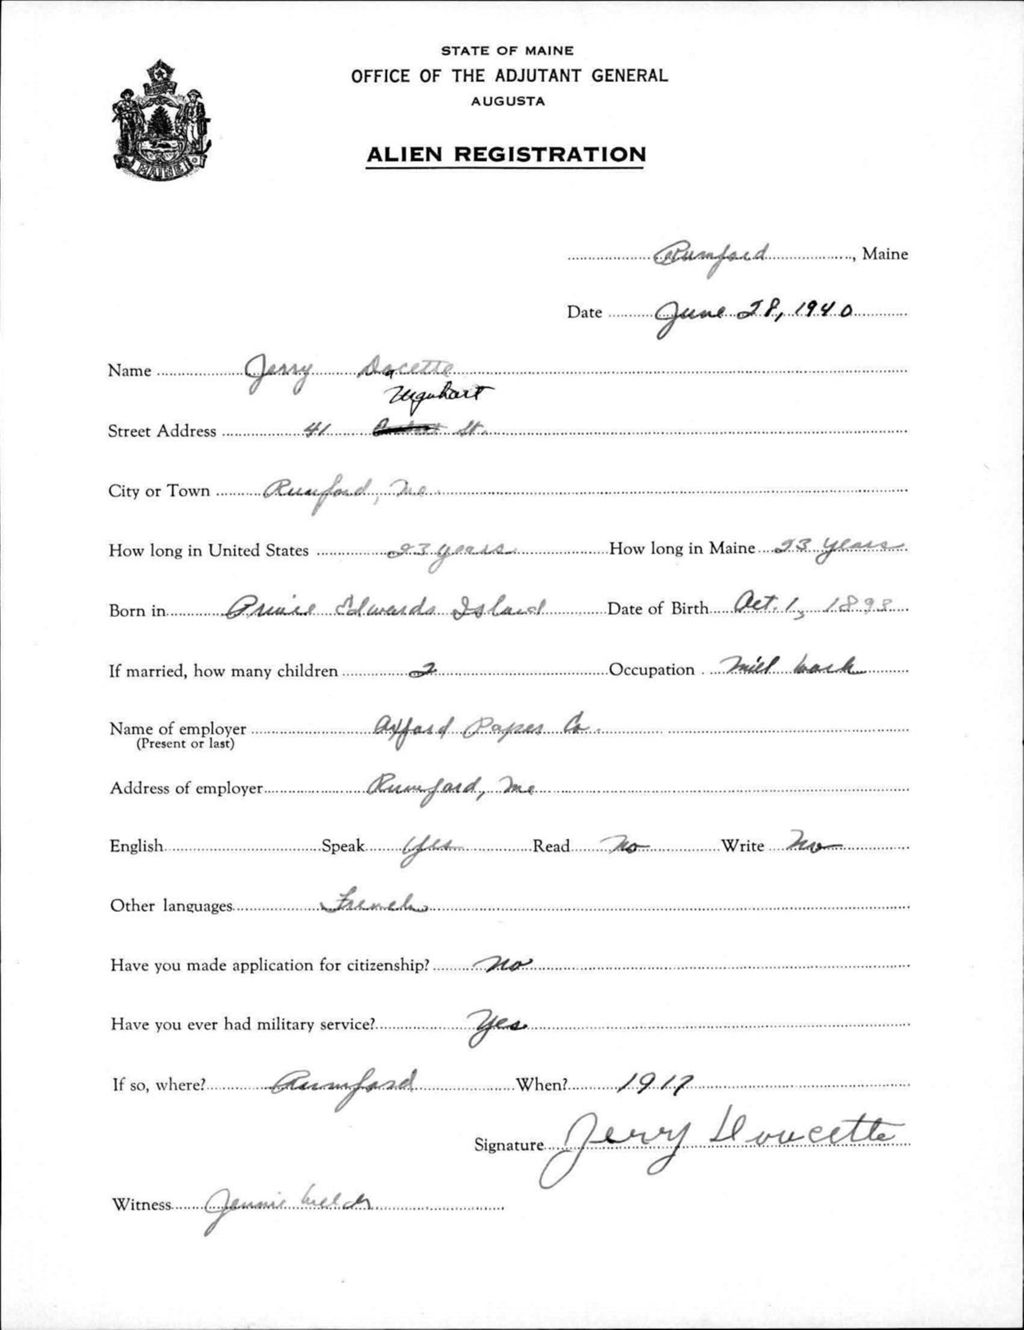 STATE OF MAINE
OFFICE OF THE ADJUTANT GENERAL
AUGUSTA
ALIEN REGISTRATION
MAINE
Rumford, Maine
Date June 28, 1940
Name Jerry Docette
Urquhart
Street Address 41 St.
City or Town Rumford, Me.
How long in United States 23 years How long in Maine 23 years
Born in Prince Edwards Island Date of Birth Oct. 1, 1898
If married, how many children 2 Occupation Mill work
Name of employer Oxford Paper Co.
(Present or last)
Address of employer Rumford, Me
English Speak Yes Read No Write No
Other languages French
Have you made application for citizenship? No
Have you ever had military service? Yes
If so, where? Rumford When? 1917
Signature Jerry Doucette
Witness Jennie Welch